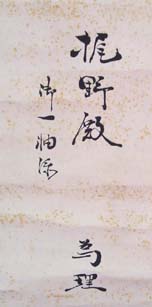 梶野殿
御一軸添
為理